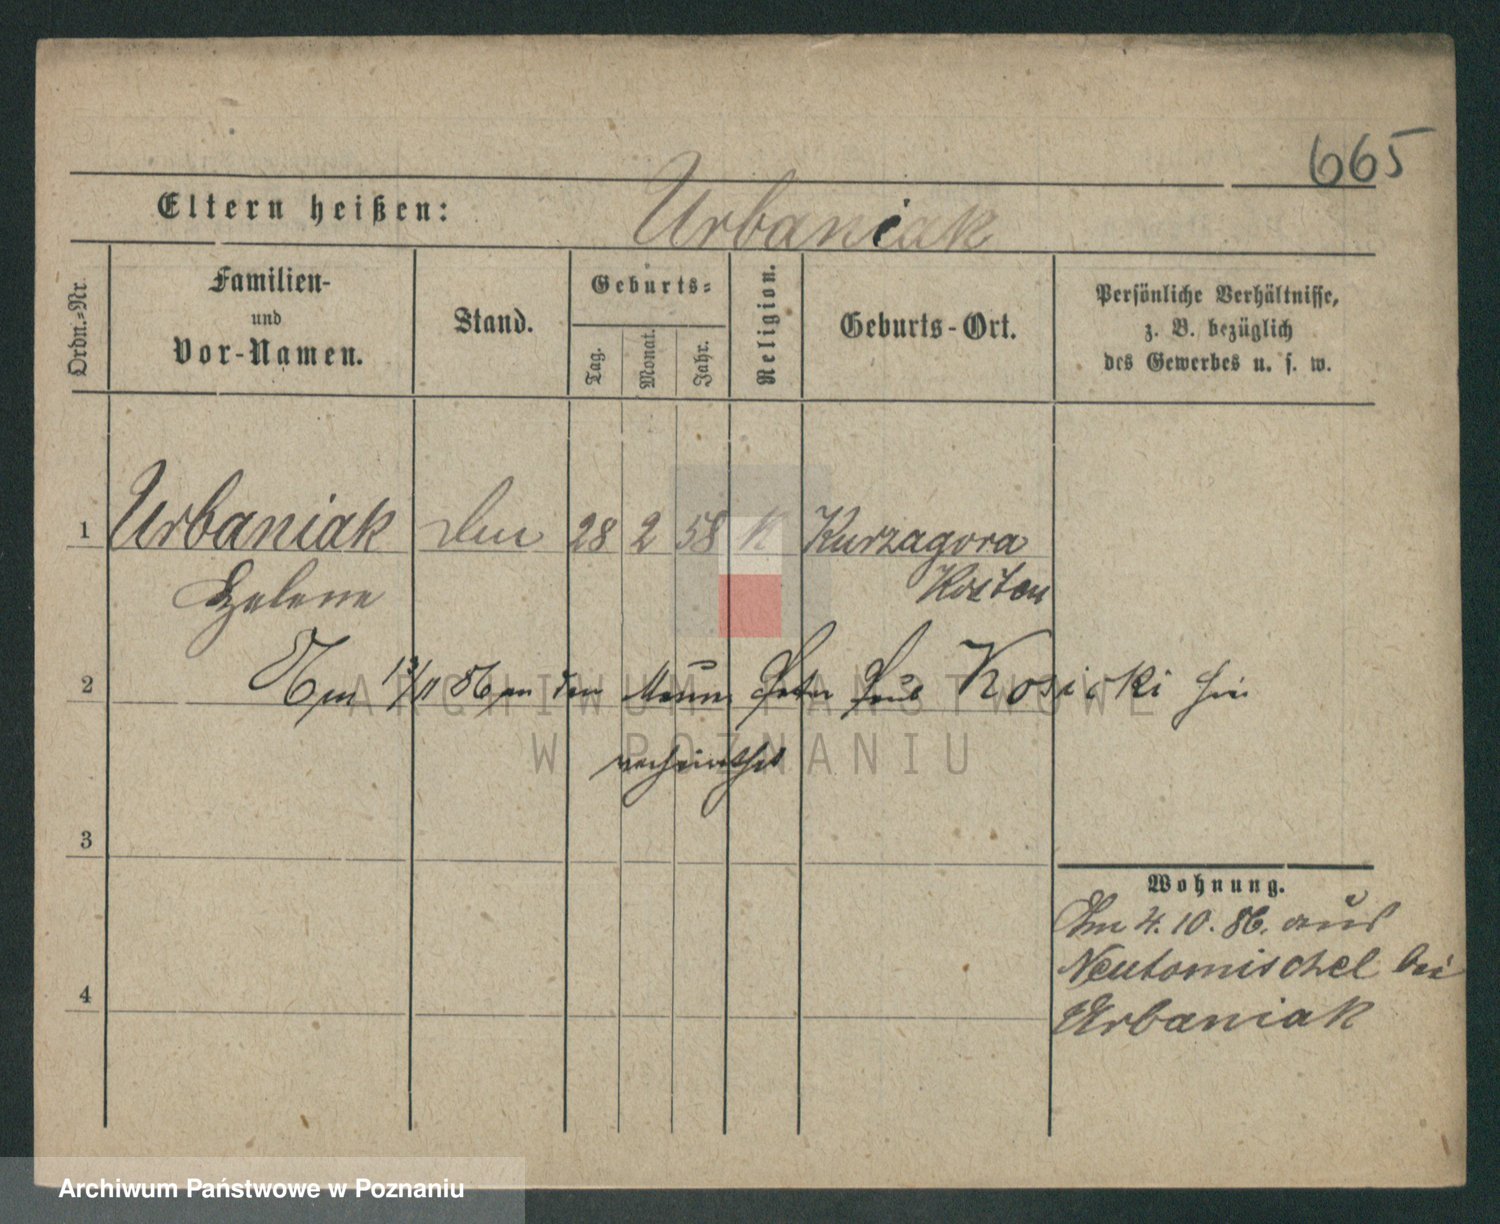 665
Eltern heißen: Urbaniak
Ordn.-Nr.
Familien-
und
Vor-Namen.
Stand.
Geburts-
Tag.
Monat.
Jahr.
Religion.
Geburts-Ort.
Persönliche Verhältnisse,
z. B. bezüglich
des Gewerbes u. s. w.
1 Urbaniak 28 2 58 K Kurzagora
Helene Kosten
2 Am 86 an den Kosicki hier
verheirathet
ARCHIWUM PAŃSTWOWE
W POZNANIU
3
Wohnung.
Am 4. 10. 86. aus
Neutomischel bei
4 Urbaniak
Archiwum Państwowe w Poznaniu